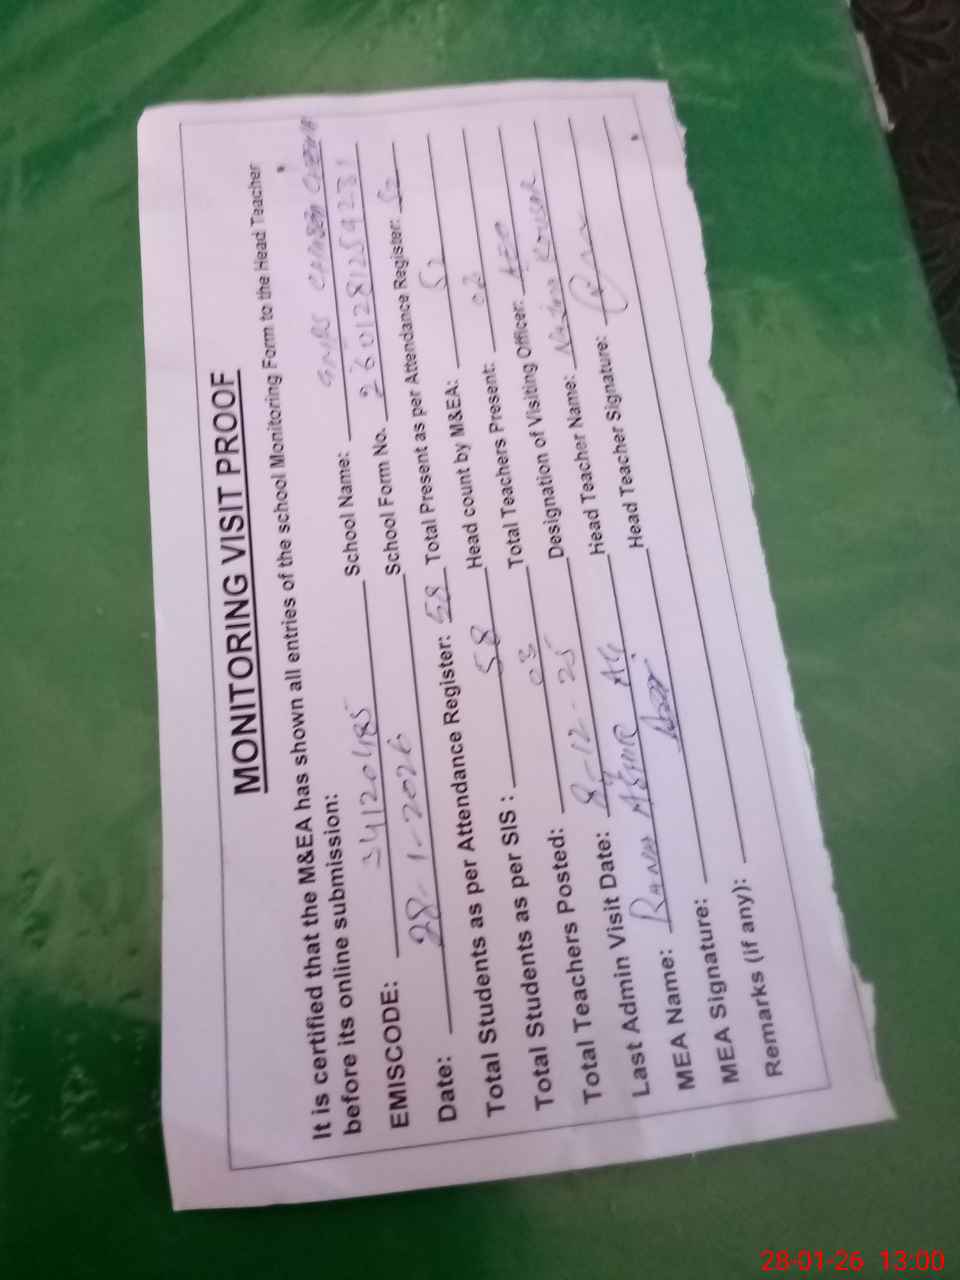 MONITORING VISIT PROOF
It is certified that the M&EA has shown all entries of the school Monitoring Form to the Head Teacher
before its online submission:
EMISCODE: 34120485 School Name: GMPS
Date: 28-1-2026 School Form No. 2601281259231
Total Students as per Attendance Register: 58 Total Present as per Attendance Register: 52
Total Students as per SIS : 58 Head count by M&EA: 52
Total Teachers Posted: 03 Total Teachers Present: 02
Last Admin Visit Date: 8-12-25 Designation of Visiting Officer: AEO
MEA Name: RANA Head Teacher Name: KOUSAR
MEA Signature: Head Teacher Signature:
Remarks (if any):
28-01-26 13:00